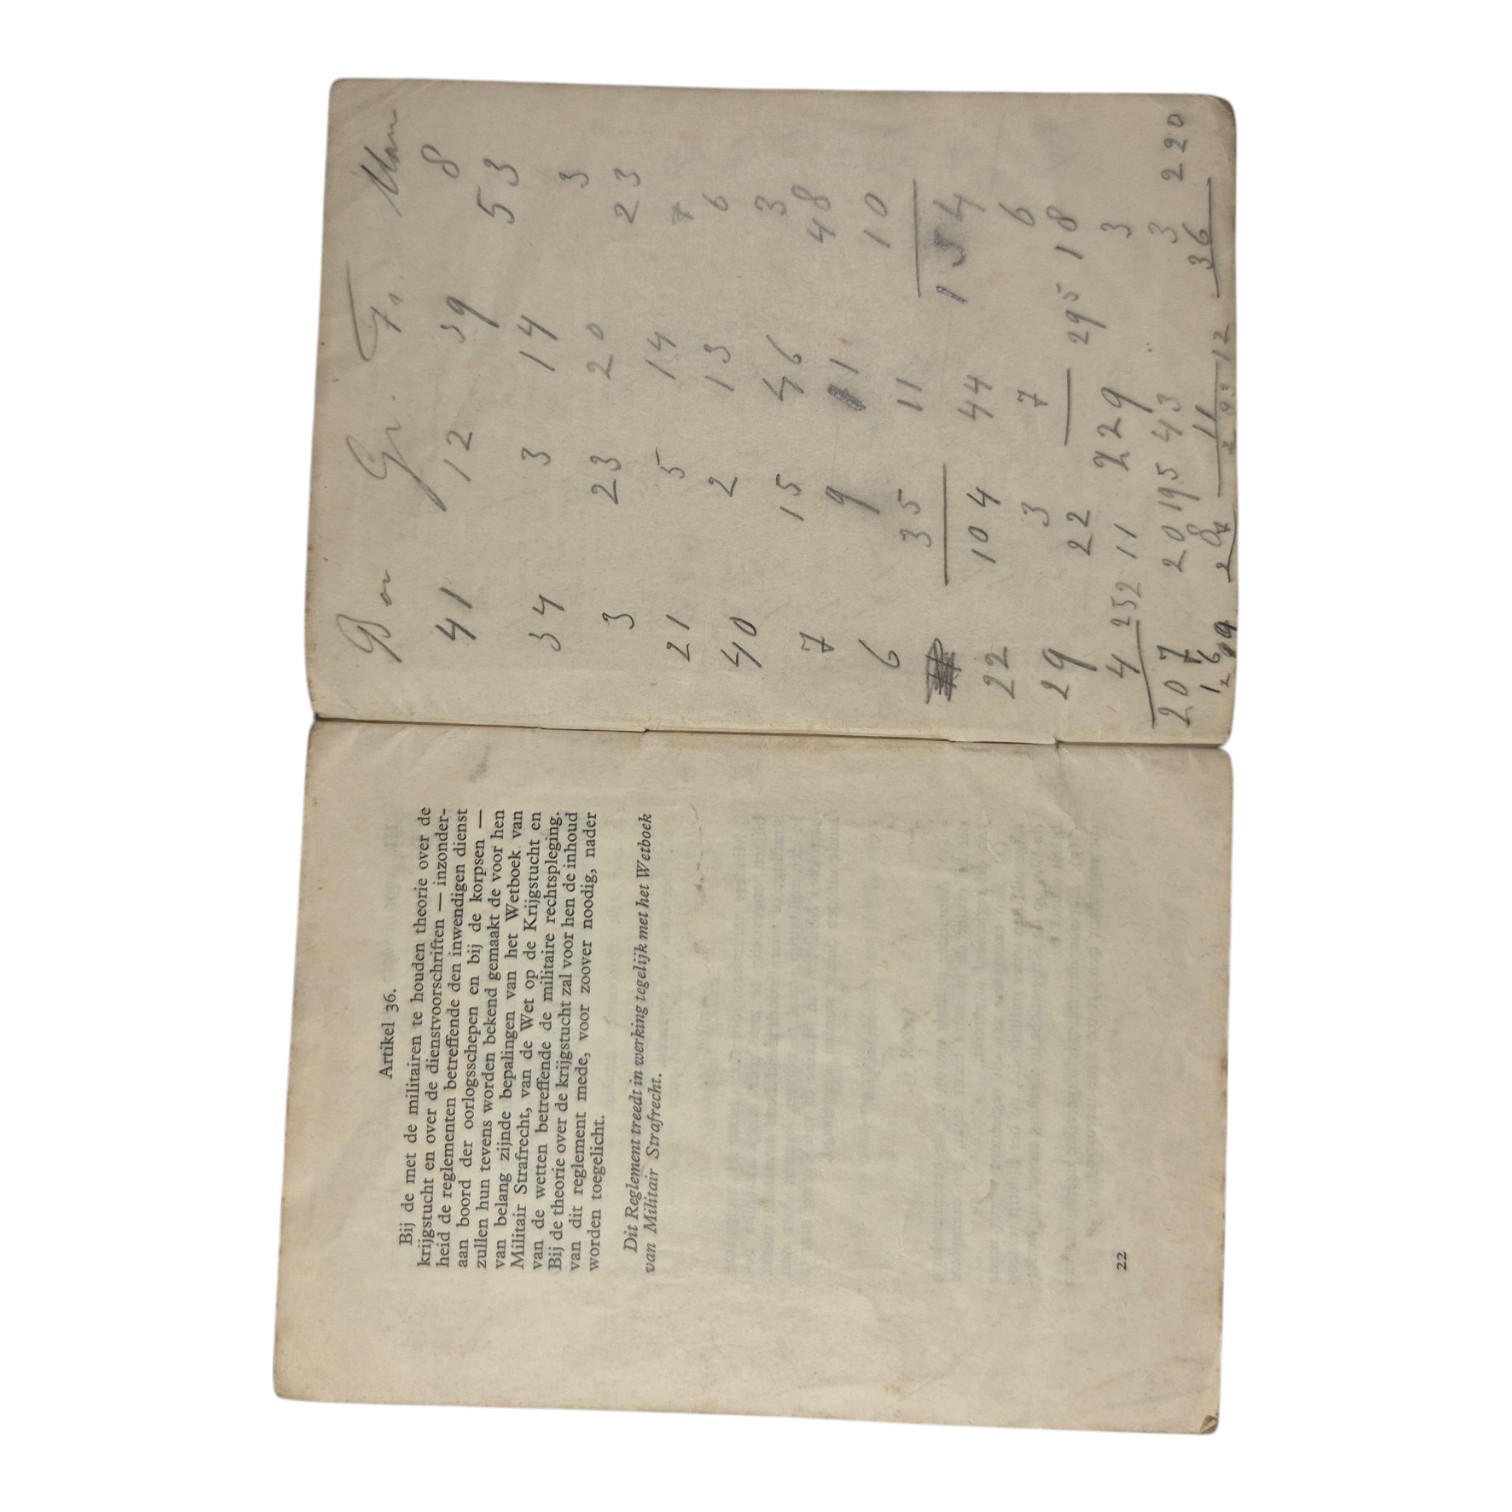 Artikel 36.
Bij de met de militairen te houden theorie over de
krijgstucht en over de dienstvoorschriften — inzonder-
heid de reglementen betreffende den inwendigen dienst
aan boord der oorlogsschepen en bij de korpsen —
zullen hun tevens worden bekend gemaakt de voor hen
van belang zijnde bepalingen van het Wetboek van
Militair Strafrecht, van de Wet op de Krijgstucht en
van de wetten betreffende de militaire rechtspleging.
Bij de theorie over de krijgstucht zal voor hen de inhoud
van dit reglement mede, voor zoover noodig, nader
worden toegelicht.
Dit Reglement treedt in werking tegelijk met het Wetboek
van Militair Strafrecht.
22
Bor Gr. Fr. Man
41 12 39 8
53
34 3 14 3
3 23 20 23
21 5 14 7
40 2 13 6
7 15 46 3
6 9 11 48
35 11 10
22 104 44 134
29 3 7 6
22 295 18
4 252 11 229 3
207 20 195 43 3 220
11 36
12